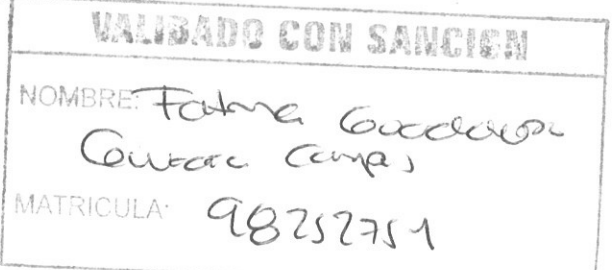 VALIDADO CON SANCION
NOMBRE: Fatima Guadalupe
Camps
MATRICULA: 98252751